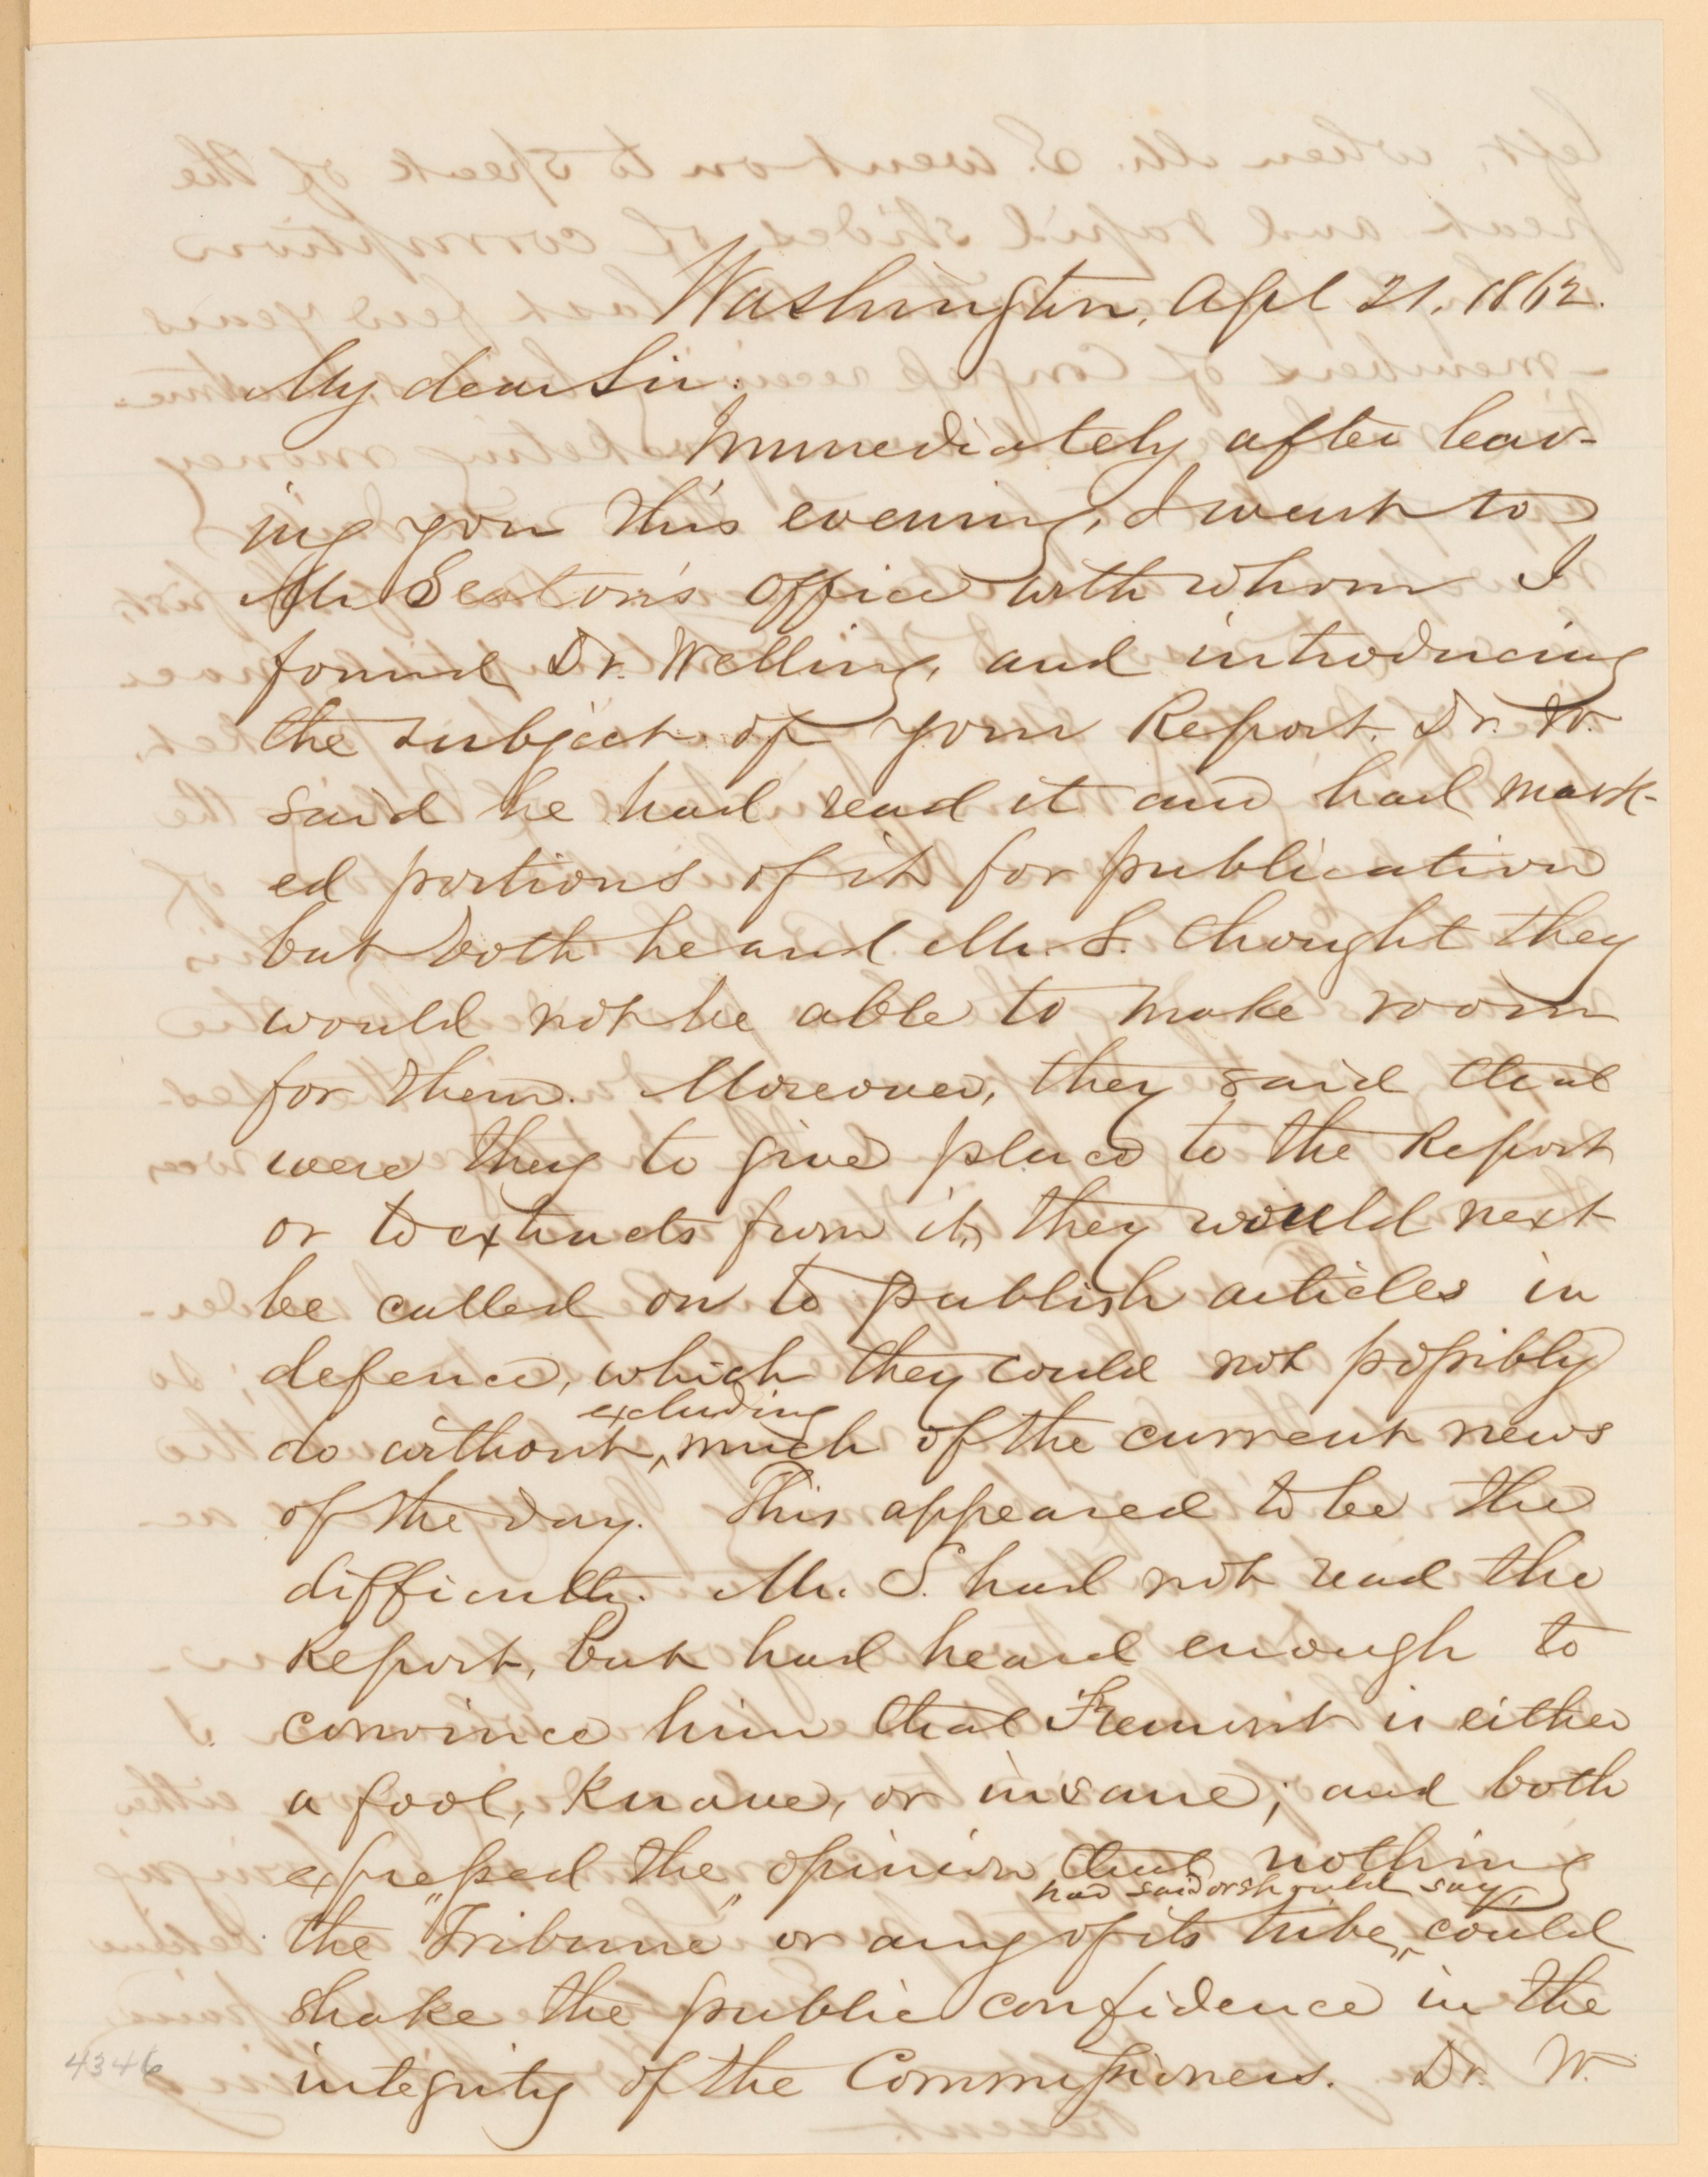 Washington, Apl 21, 1862.
My dear Sir:
Immediately after leav-
ing you this evening, I went to
Mr Seaton's office with whom I
found Dr. Welling, and introducing
the subject of your Report. Dr. W.
said he had read it and had mark-
ed portions of it for publication
but both he and Mr. S. thought they
would not be able to make room
for them. Moreover, they said that
were they to give place to the Report
or to extracts from it, they would next
be called on to publish articles in
defence, which they could not possibly
excluding
do without ‸ much of the current news
of the day. This appeared to be the
difficulty. Mr. S. had not read the
Report, but had heard enough to
convince him that Fremont is either
a fool, knave, or insane; and both
expressed the opinion that nothing
had said or should say,
the "Tribune" or any of its tribe, ‸ could
shake the public confidence in the
integrity of the Commissioners. Dr. W.
4346